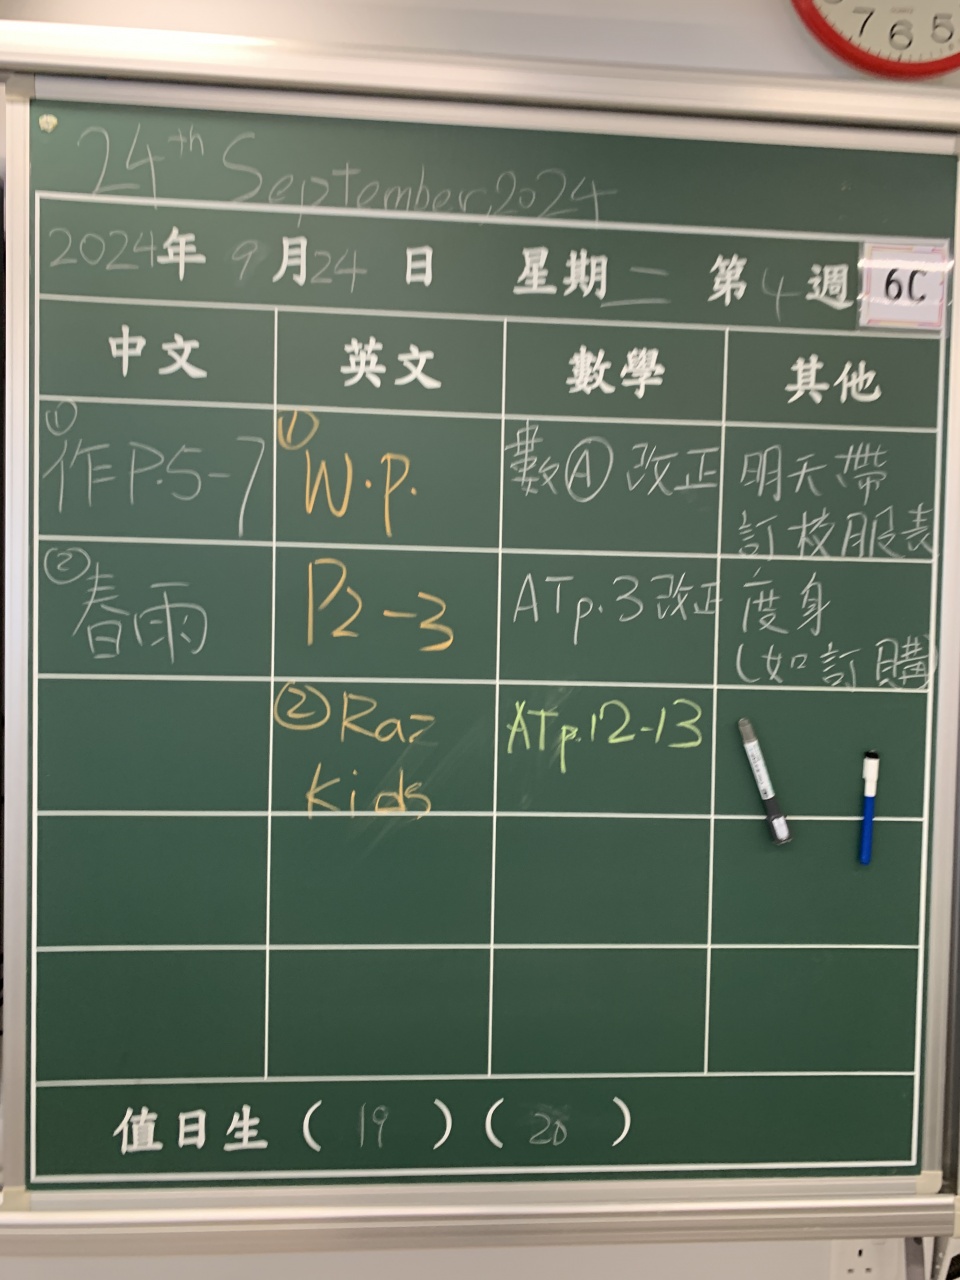 24th September, 2024
2024年 9月24日 星期二 第4週 6C
中文 英文 數學 其他
① 作P.5-7
② 春雨
① W.P.
P2-3
② Raz
Kids
數Ⓐ 改正
ATp.3改正
ATp.12-13
明天帶
訂校服表
度身
(如訂購)
值日生 ( 19 ) ( 20 )
7 6 5